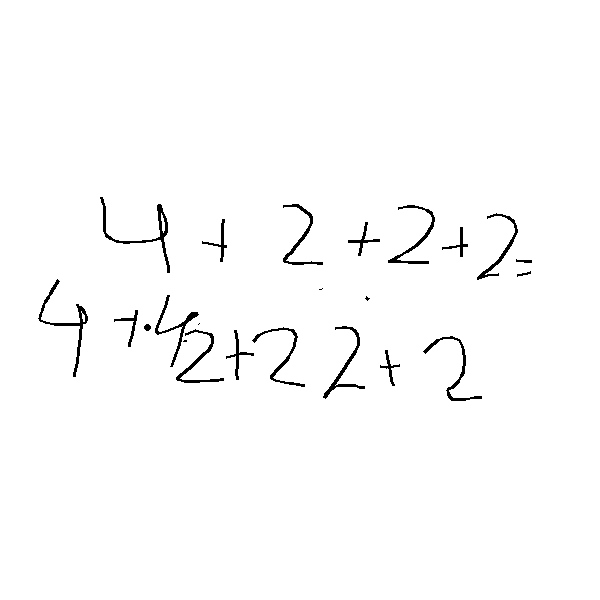 4 + 2 + 2 + 2 =
4 + .42 + 22 + 2